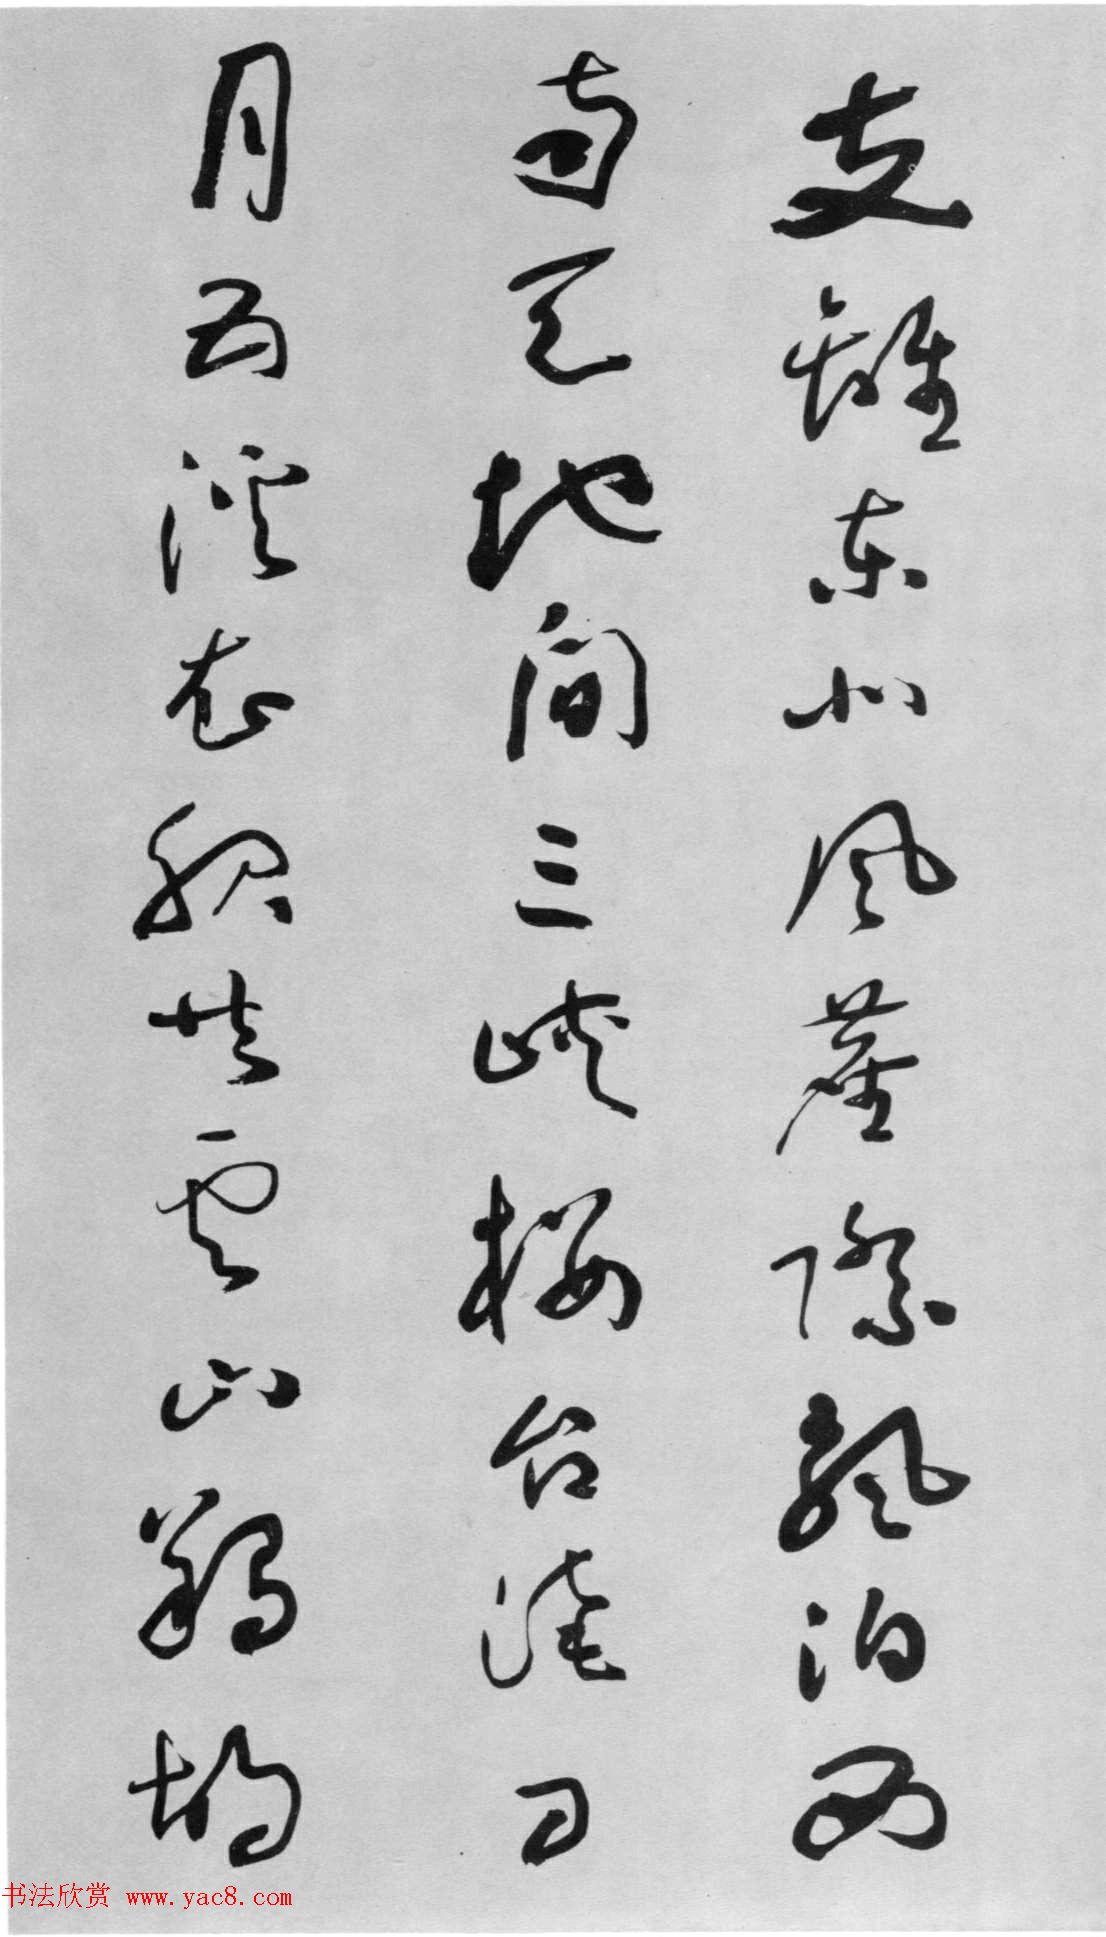 支離東北風塵際飄泊西
南天地間三峽樓台淹日
月五溪衣服共雲山羯胡
书法欣赏 www.yac8.com